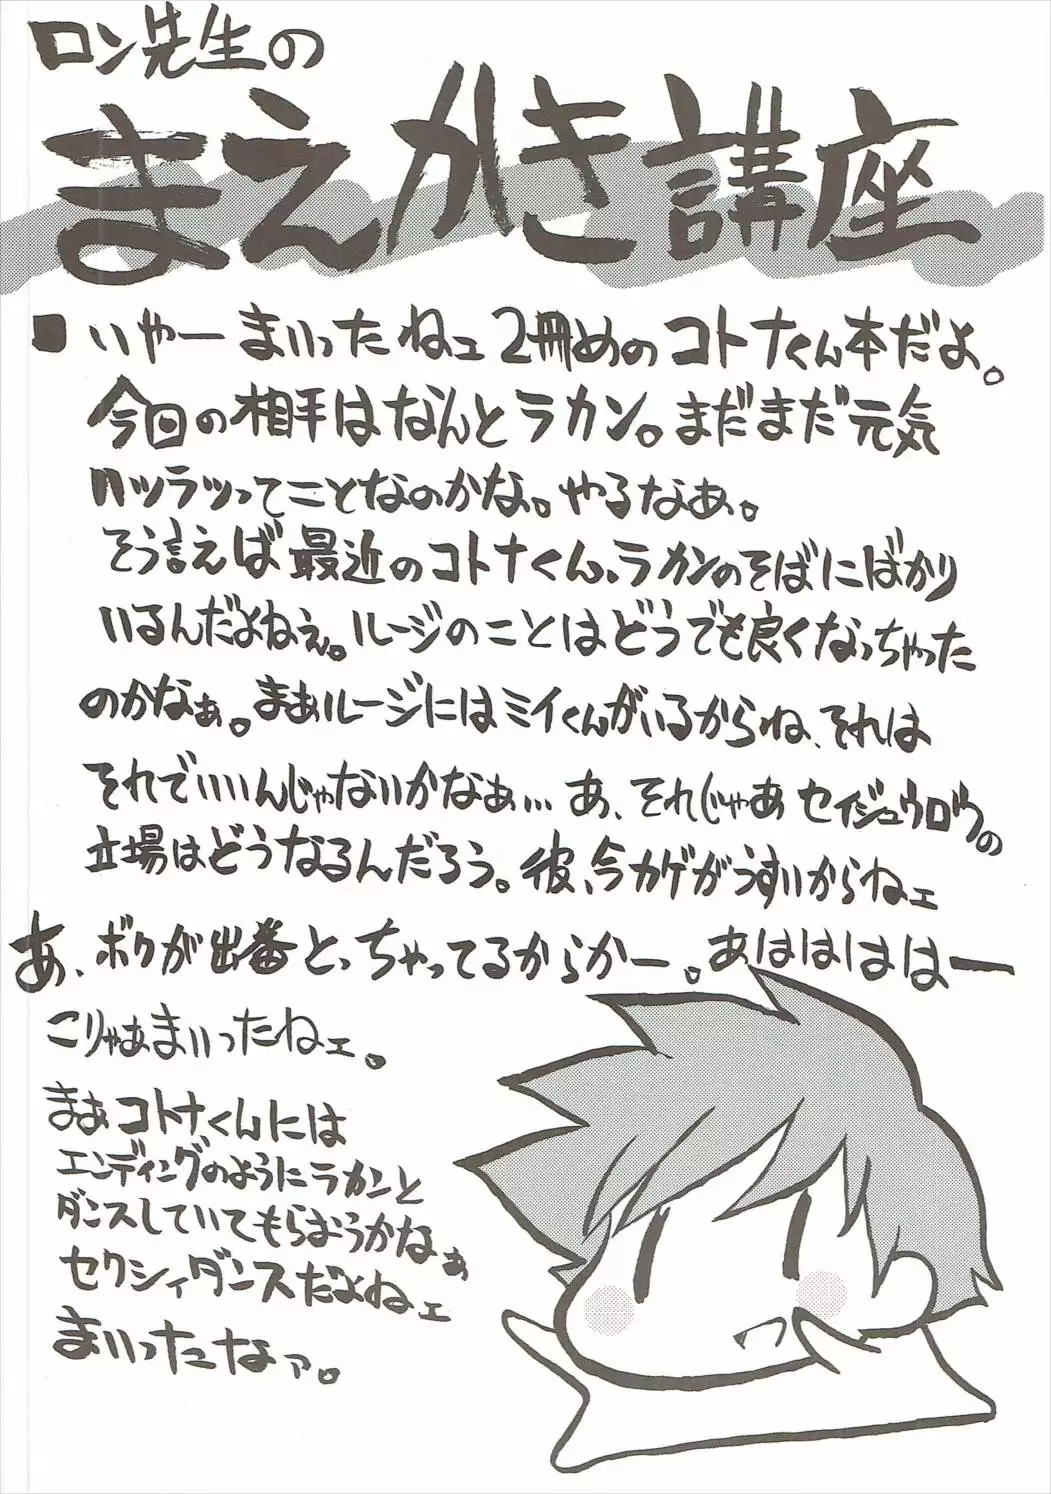 ロン先生の
まえがき講座
■いやーまいったねェ2冊めのコトナくん本だよ。
今回の相手はなんとラカン。まだまだ元気
ハツラツってことなのかな。やるなあ。
そう言えば最近のコトナくん、ラカンのそばにばかり
いるんだよねぇ。ルージのことはどうでも良くなっちゃった
のかなぁ。まぁルージにはミイくんがいるからね、それは
それでいいんじゃないかなぁ…あ、それじゃあセイジュウロウの
立場はどうなるんだろう。彼、今カゲがうすいからねェ
あ、ボクが出番とっちゃってるからかー。あはははは━
こりゃあまいったねェ。
まぁコトナくんには
エンディングのようにラカンと
ダンスしていてもらおうかなぁ
セクシィダンスだよねェ
まいったなァ。